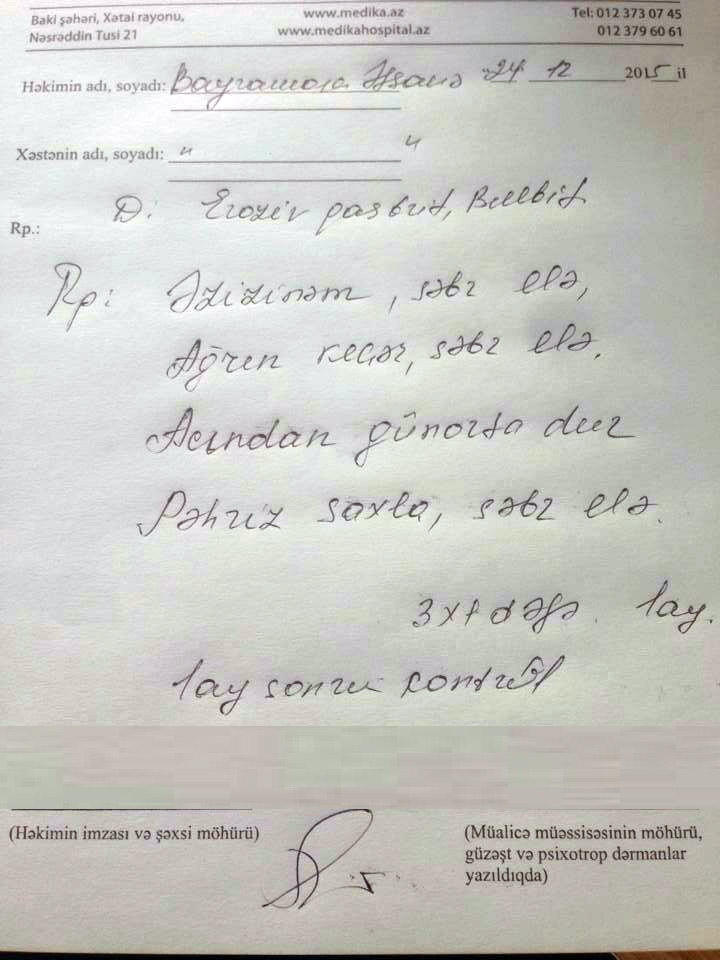 Bakı şəhəri, Xətai rayonu,
Nəsrəddin Tusi 21
www.medika.az
www.medikahospital.az
Tel: 012 373 07 45
012 379 60 61
Həkimin adı, soyadı: Bayramova Əfsanə 24 12 2015 il
Xəstənin adı, soyadı: " "
D: Eroziv qastrit, Bulbit
Rp.:
Rp: Əzizinəm, səbr elə,
Ağren keçər, səbr elə.
Acından günorta dur
Pəhriz saxla, səbr elə.
3x1 dəfə. 1ay.
1ay sonra kontrol
(Həkimin imzası və şəxsi möhürü)
(Müalicə müəssisəsinin möhürü,
güzəşt və psixotrop dərmanlar
yazıldıqda)